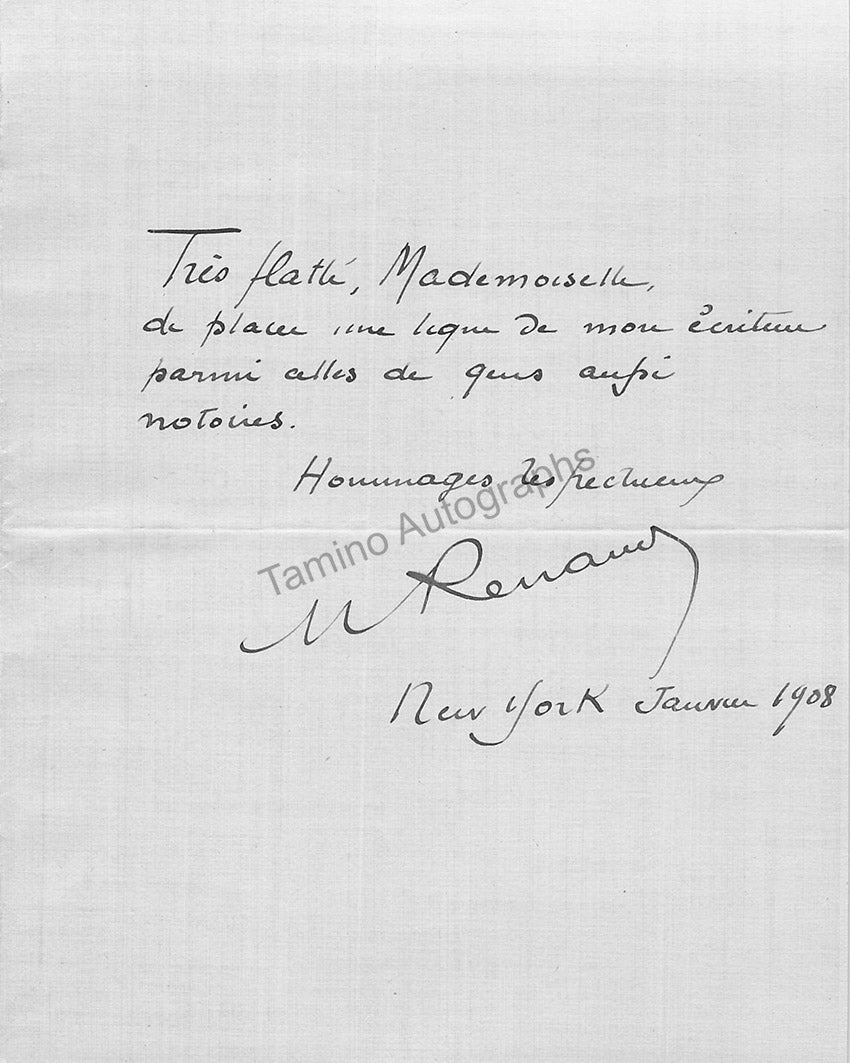 Très flatté, Mademoiselle,
de placer une ligne de mon écriture
parmi celles de gens aussi
notoires.
Hommages respectueux
Tamino Autographs
M Renaud
New York Janvier 1908